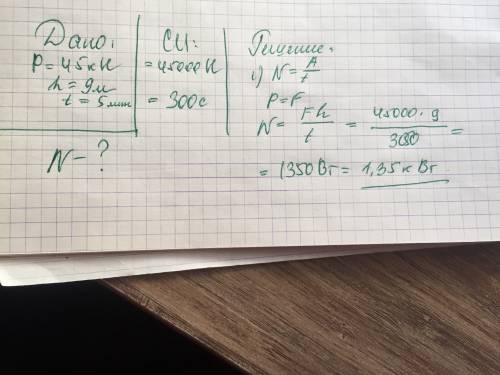 Дано:
P = 45кН
h = 9м
t = 5мин
N - ?
СИ:
= 45000Н
= 300с
Решение:
1) N = A/t
P = F
N = Fh/t = 45000·9/300 =
= 1350Вт = 1,35кВт